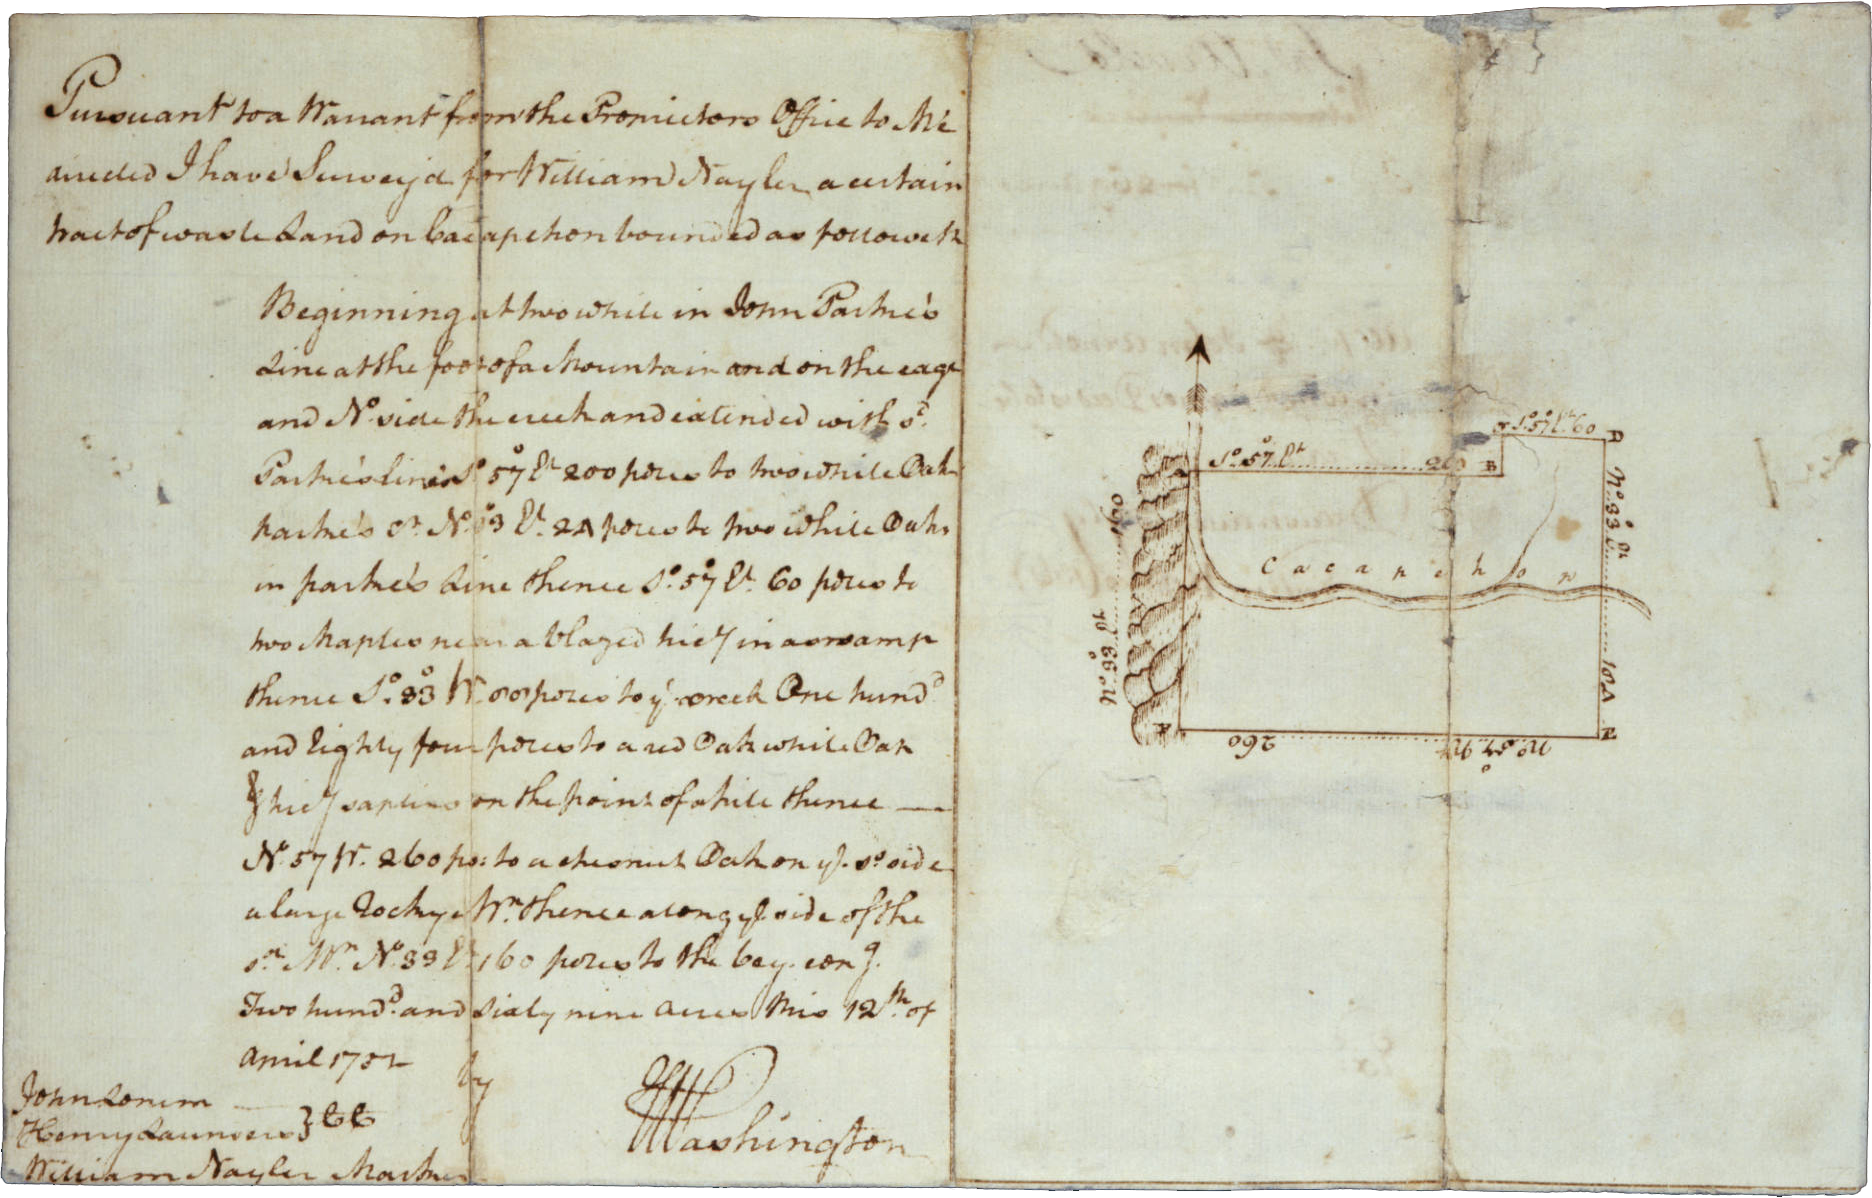 Pursuant to a Warrant from the Proprietors Office to Me
directed I have Survey'd for William Nayler a certain
tract of waste Land on Cacapehon bounded as followeth
Beginning at two white in John Parke's
Line at the foot of a Mountain and on the eage
and No. side the creek and extended with sd.
Parke's line So. 57° Et. 200 poles to two white Oak
parke's Cr. No. 33° Et. 24 poles to two white Oaks
in parke's Line thence So. 57° Et. 60 poles to
two Maples near a blazed hicy in a swamp
thence So. 33° W. 88 poles to ye. creek One hundd
and Eighty four poles to a red Oak white Oak
& hicy saplins on the point of a hill thence —
No. 57 W. 260 po: to a chesnut Oak on ye. So. side
a large Rockye Mn. thence along ye. side of the
sd. Mn. No. 33 Et. 160 poles to the beg. cong.
Two hundd. and Sixty nine Acres this 12th. of
April 1752
by
Washington
John Lonem
Henry Saunders } CC
William Nayler Marker
So. 57° Et. 200 B
C So. 57° Et. 60 D
No. 33° Et. 184 E
No. 57° Wt. 260 F
No. 33° Et. 160
Cacapehon